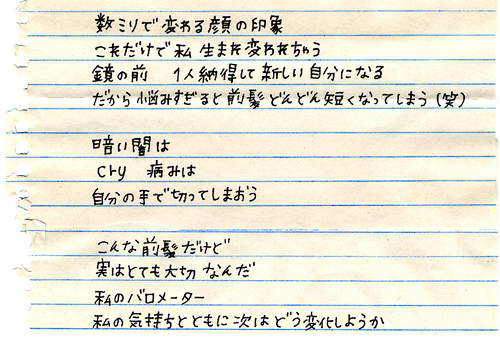 数ミリで変わる顔の印象
これだけで私生まれ変われちゃう
鏡の前 1人納得して新しい自分になる
だから悩みすぎると前髪どんどん短くなってしまう(笑)
暗い闇は
cry 病みは
自分の手で切ってしまおう
こんな前髪だけど
実はとても大切なんだ
私のバロメーター
私の気持ちとともに次はどう変化しようか